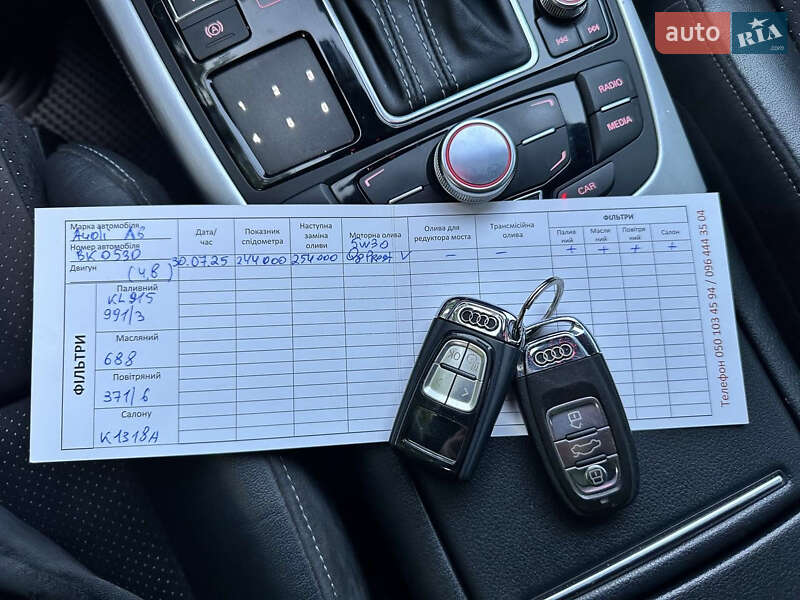 auto RIA .com
RADIO
MEDIA
CAR
Марка автомобіля
Ауді А6
Номер автомобіля
ВК 0530
Двигун
Дата/ час
Показник спідометра
Наступна заміна оливи
Моторна олива
Олива для редуктора моста
Трансмісійна олива
ФІЛЬТРИ
Паливний
Масляний
Повітряний
Салон
30.07.25 244000 254000 5W30 V — — + + + +
ФІЛЬТРИ
Паливний
KL915
991/3
Масляний
688
Повітряний
371/6
Салону
K1318A
Телефон 050 103 45 94 / 096 444 35 04
OK